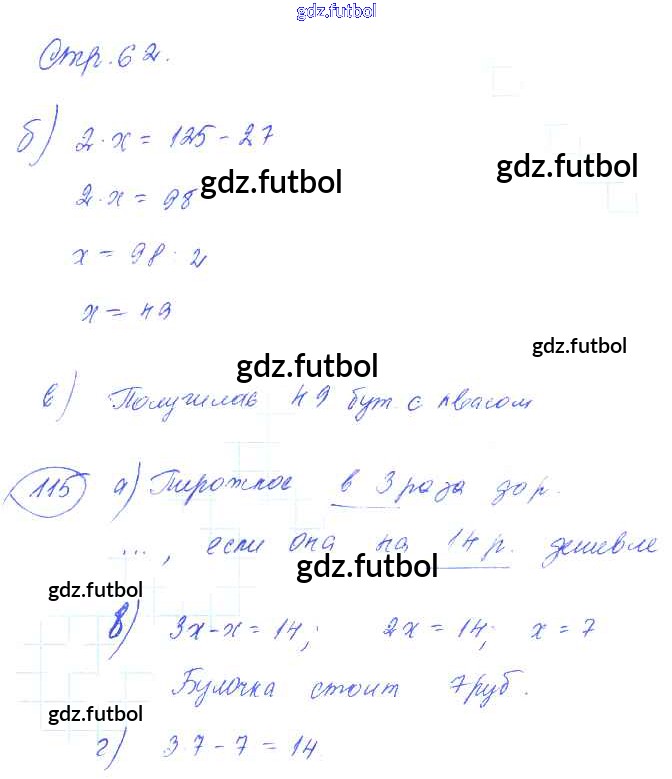 gdz.futbol
Стр. 62.
б) 2·x = 125 - 27
gdz.futbol
2·x = 98 gdz.futbol
x = 98 : 2
x = 49
gdz.futbol
gdz.futbol
в) Получилась 49 бут. с квасом
115 а) Пирожное в 3 раза дор.
..., если она на 14 р. дешевле
gdz.futbol
gdz.futbol
в) 3x - x = 14; 2x = 14; x = 7
Булочка стоит 7 руб.
gdz.futbol
г) 3·7 - 7 = 14.